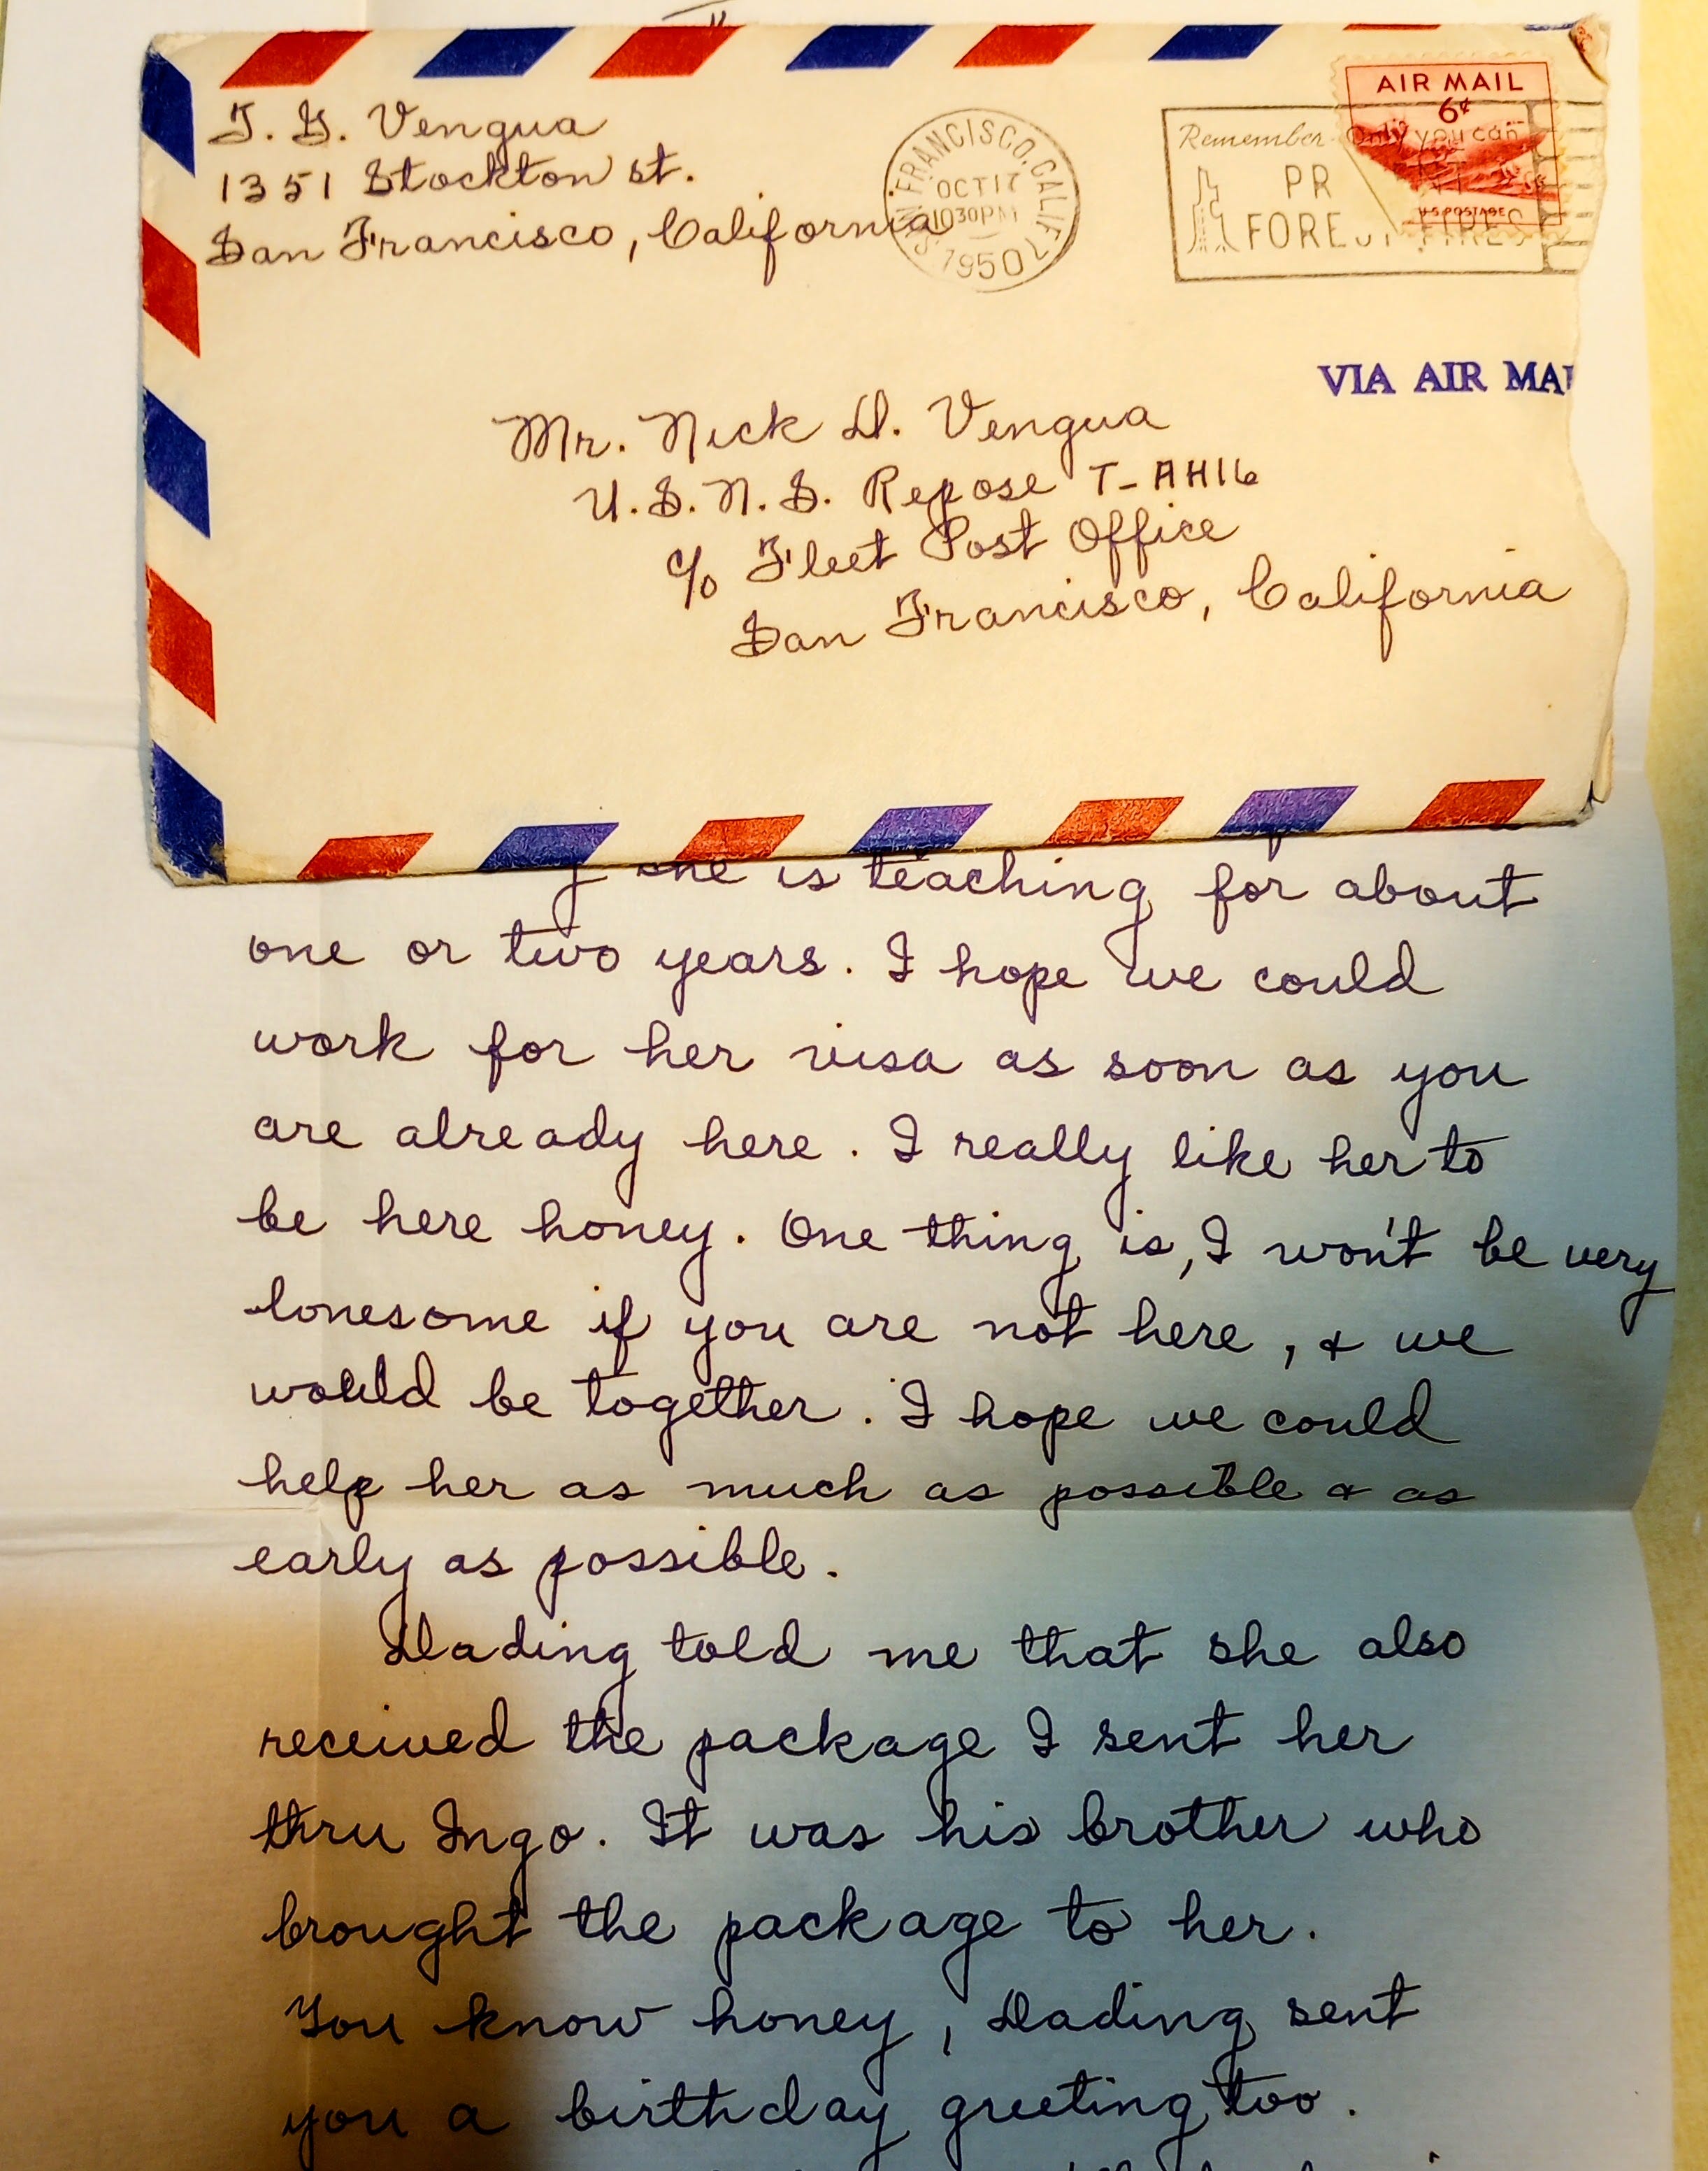 T. G. Vengua
1351 Stockton st.
San Francisco, California
SAN FRANCISCO, CALIF.
OCT 17
1030 PM
1950
AIR MAIL
6¢
U.S. POSTAGE
Remember - Only you can
PR
FOREST FIRES
VIA AIR MAI
Mr. Nick D. Vengua
U.S.N.S. Repose T-AH16
c/o Fleet Post Office
San Francisco, California
is teaching for about
one or two years. I hope we could
work for her visa as soon as you
are already here. I really like her to
be here honey. One thing is, I won't be very
lonesome if you are not here, & we
would be together. I hope we could
help her as much as possible & as
early as possible.
Dading told me that she also
received the package I sent her
thru Ingo. It was his brother who
brought the package to her.
You know honey, Dading sent
you a birthday greeting too.